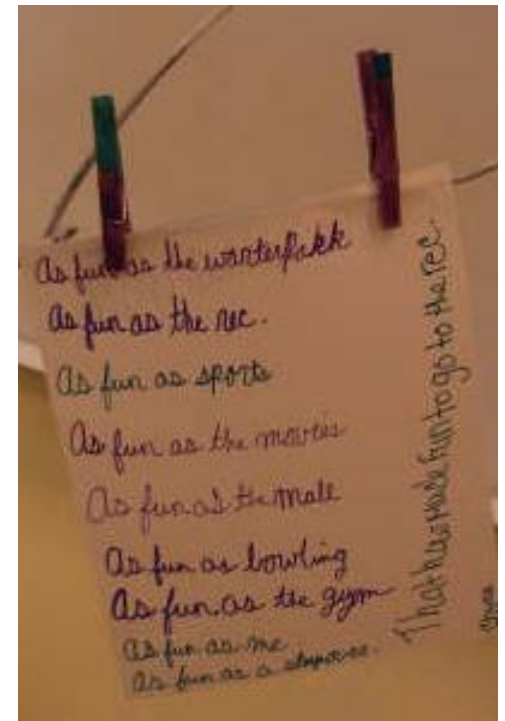 As fun as the warterpakk
As fun as the rec.
As fun as sports
As fun as the movies
As fun as the male
As fun as bowling
As fun as the gym
As fun as me
As fun as a
fun to go to the rec.